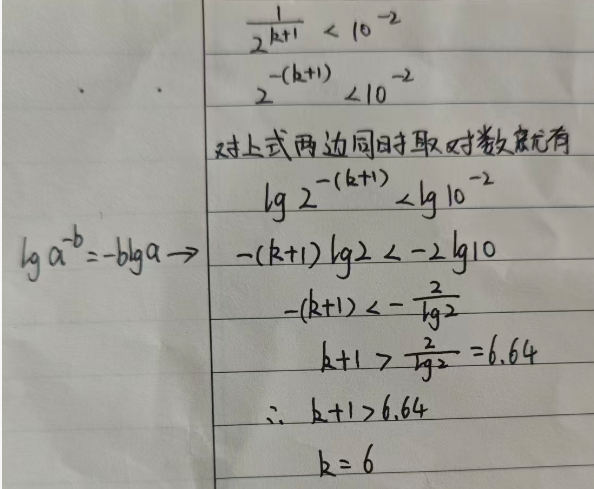 1/2^{k+1} < 10^{-2}
2^{-(k+1)} < 10^{-2}
对上式两边同时取对数就有
lg 2^{-(k+1)} < lg 10^{-2}
lg a^{-b} = -b lg a → -(k+1) lg 2 < -2 lg 10
-(k+1) < - 2/lg 2
k+1 > 2/lg 2 = 6.64
∴ k+1 > 6.64
k = 6